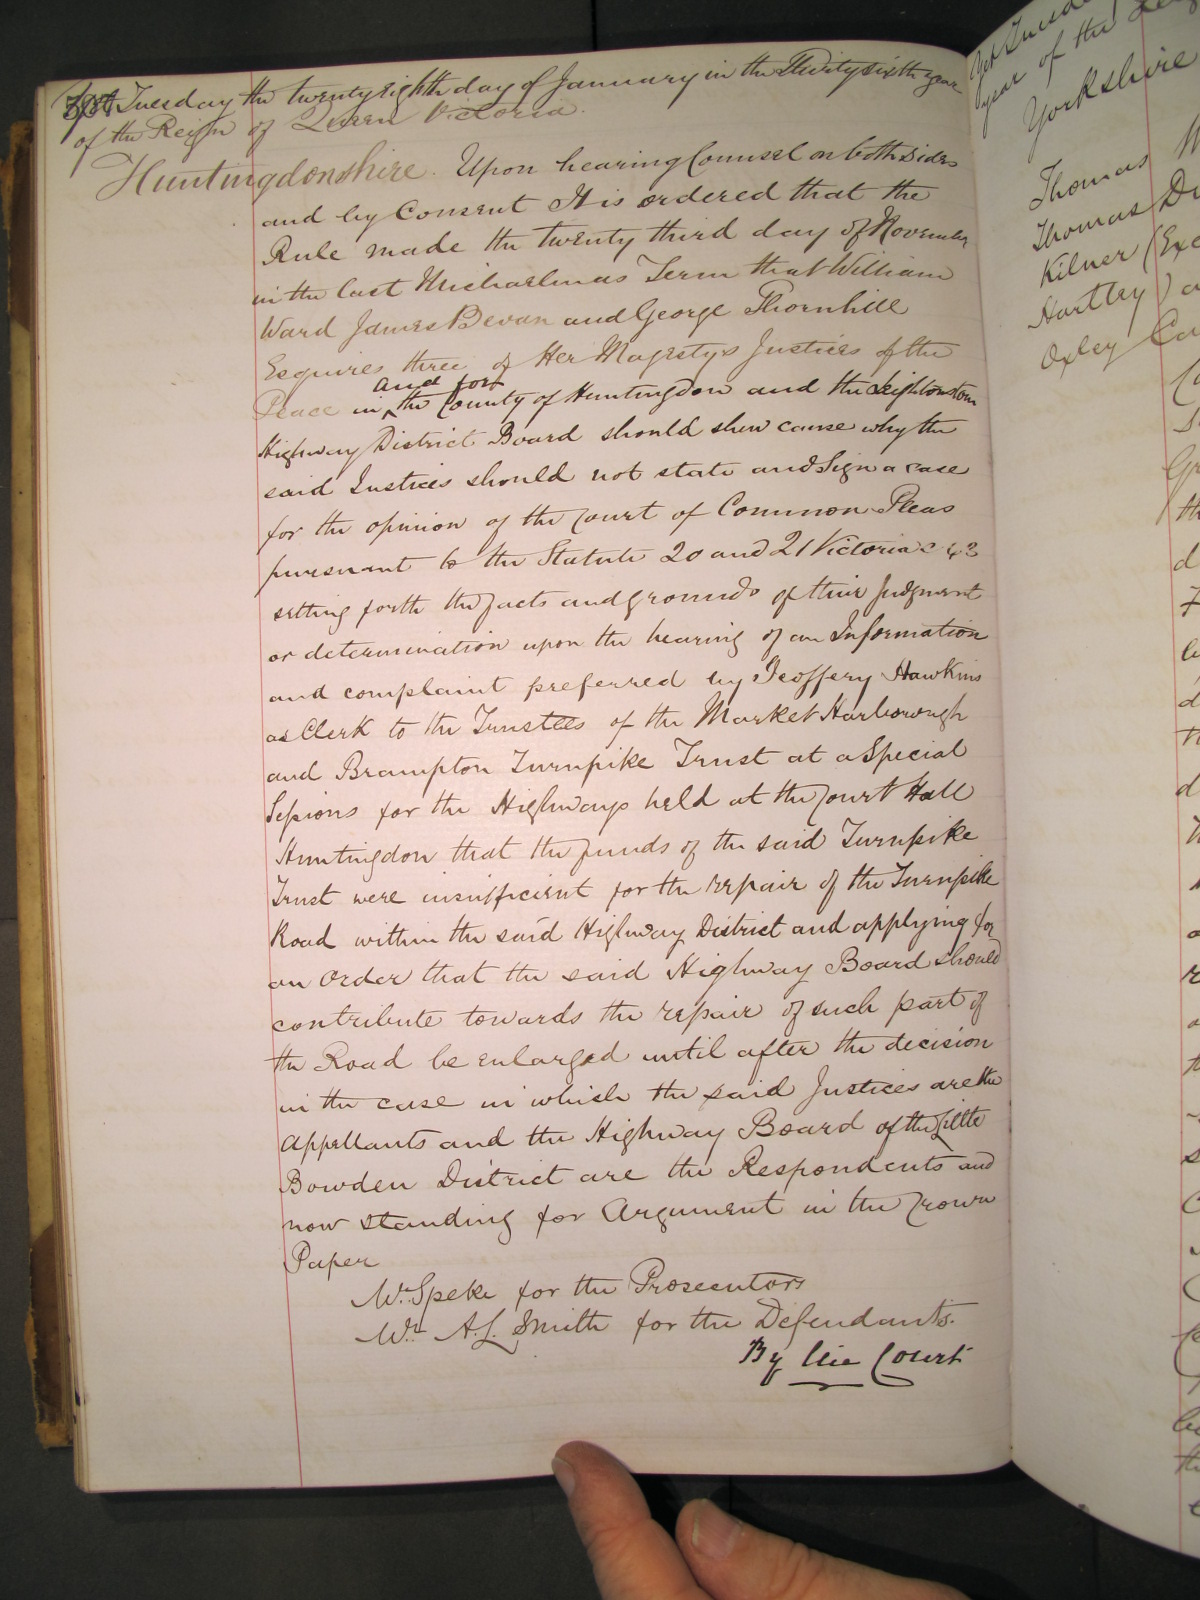 Yet Tuesday the twentyeighth day of January in the Thirtysixth year
of the Reign of Queen Victoria.
Huntingdonshire. Upon hearing Counsel on both sides
and by Consent It is ordered that the
Rule made the twenty third day of November
in the last Michaelmas Term that William
Ward James Bevan and George Thornhill
Esquires three of Her Majestys Justices of the
Peace in and for the County of Huntingdon and the Leightonstone
Highway District Board should shew cause why the
said Justices should not state and Sign a case
for the opinion of the Court of Common Pleas
pursuant to the Statute 20 and 21 Victoria c 43
setting forth the facts and grounds of their Judgment
or determination upon the hearing of an Information
and complaint preferred by Geoffery Hawkins
as Clerk to the Trustees of the Market Harborough
and Brampton Turnpike Trust at a Special
Sessions for the Highways held at the Court Hall
Huntingdon that the funds of the said Turnpike
Trust were insufficient for the repair of the Turnpike
Road within the said Highway District and applying for
an order that the said Highway Board should
contribute towards the repair of such part of
the Road be enlarged until after the decision
in the case in which the said Justices are the
Appellants and the Highway Board of the Little
Bowden District are the Respondents and
now standing for Argument in the Crown
Paper
Mr. Speke for the Prosecutors
Mr. A. L. Smith for the Defendants.
By the Court
year of the
Yorkshire
Thomas
Thomas
Kilner (Exe
Hartley) a
Oxley